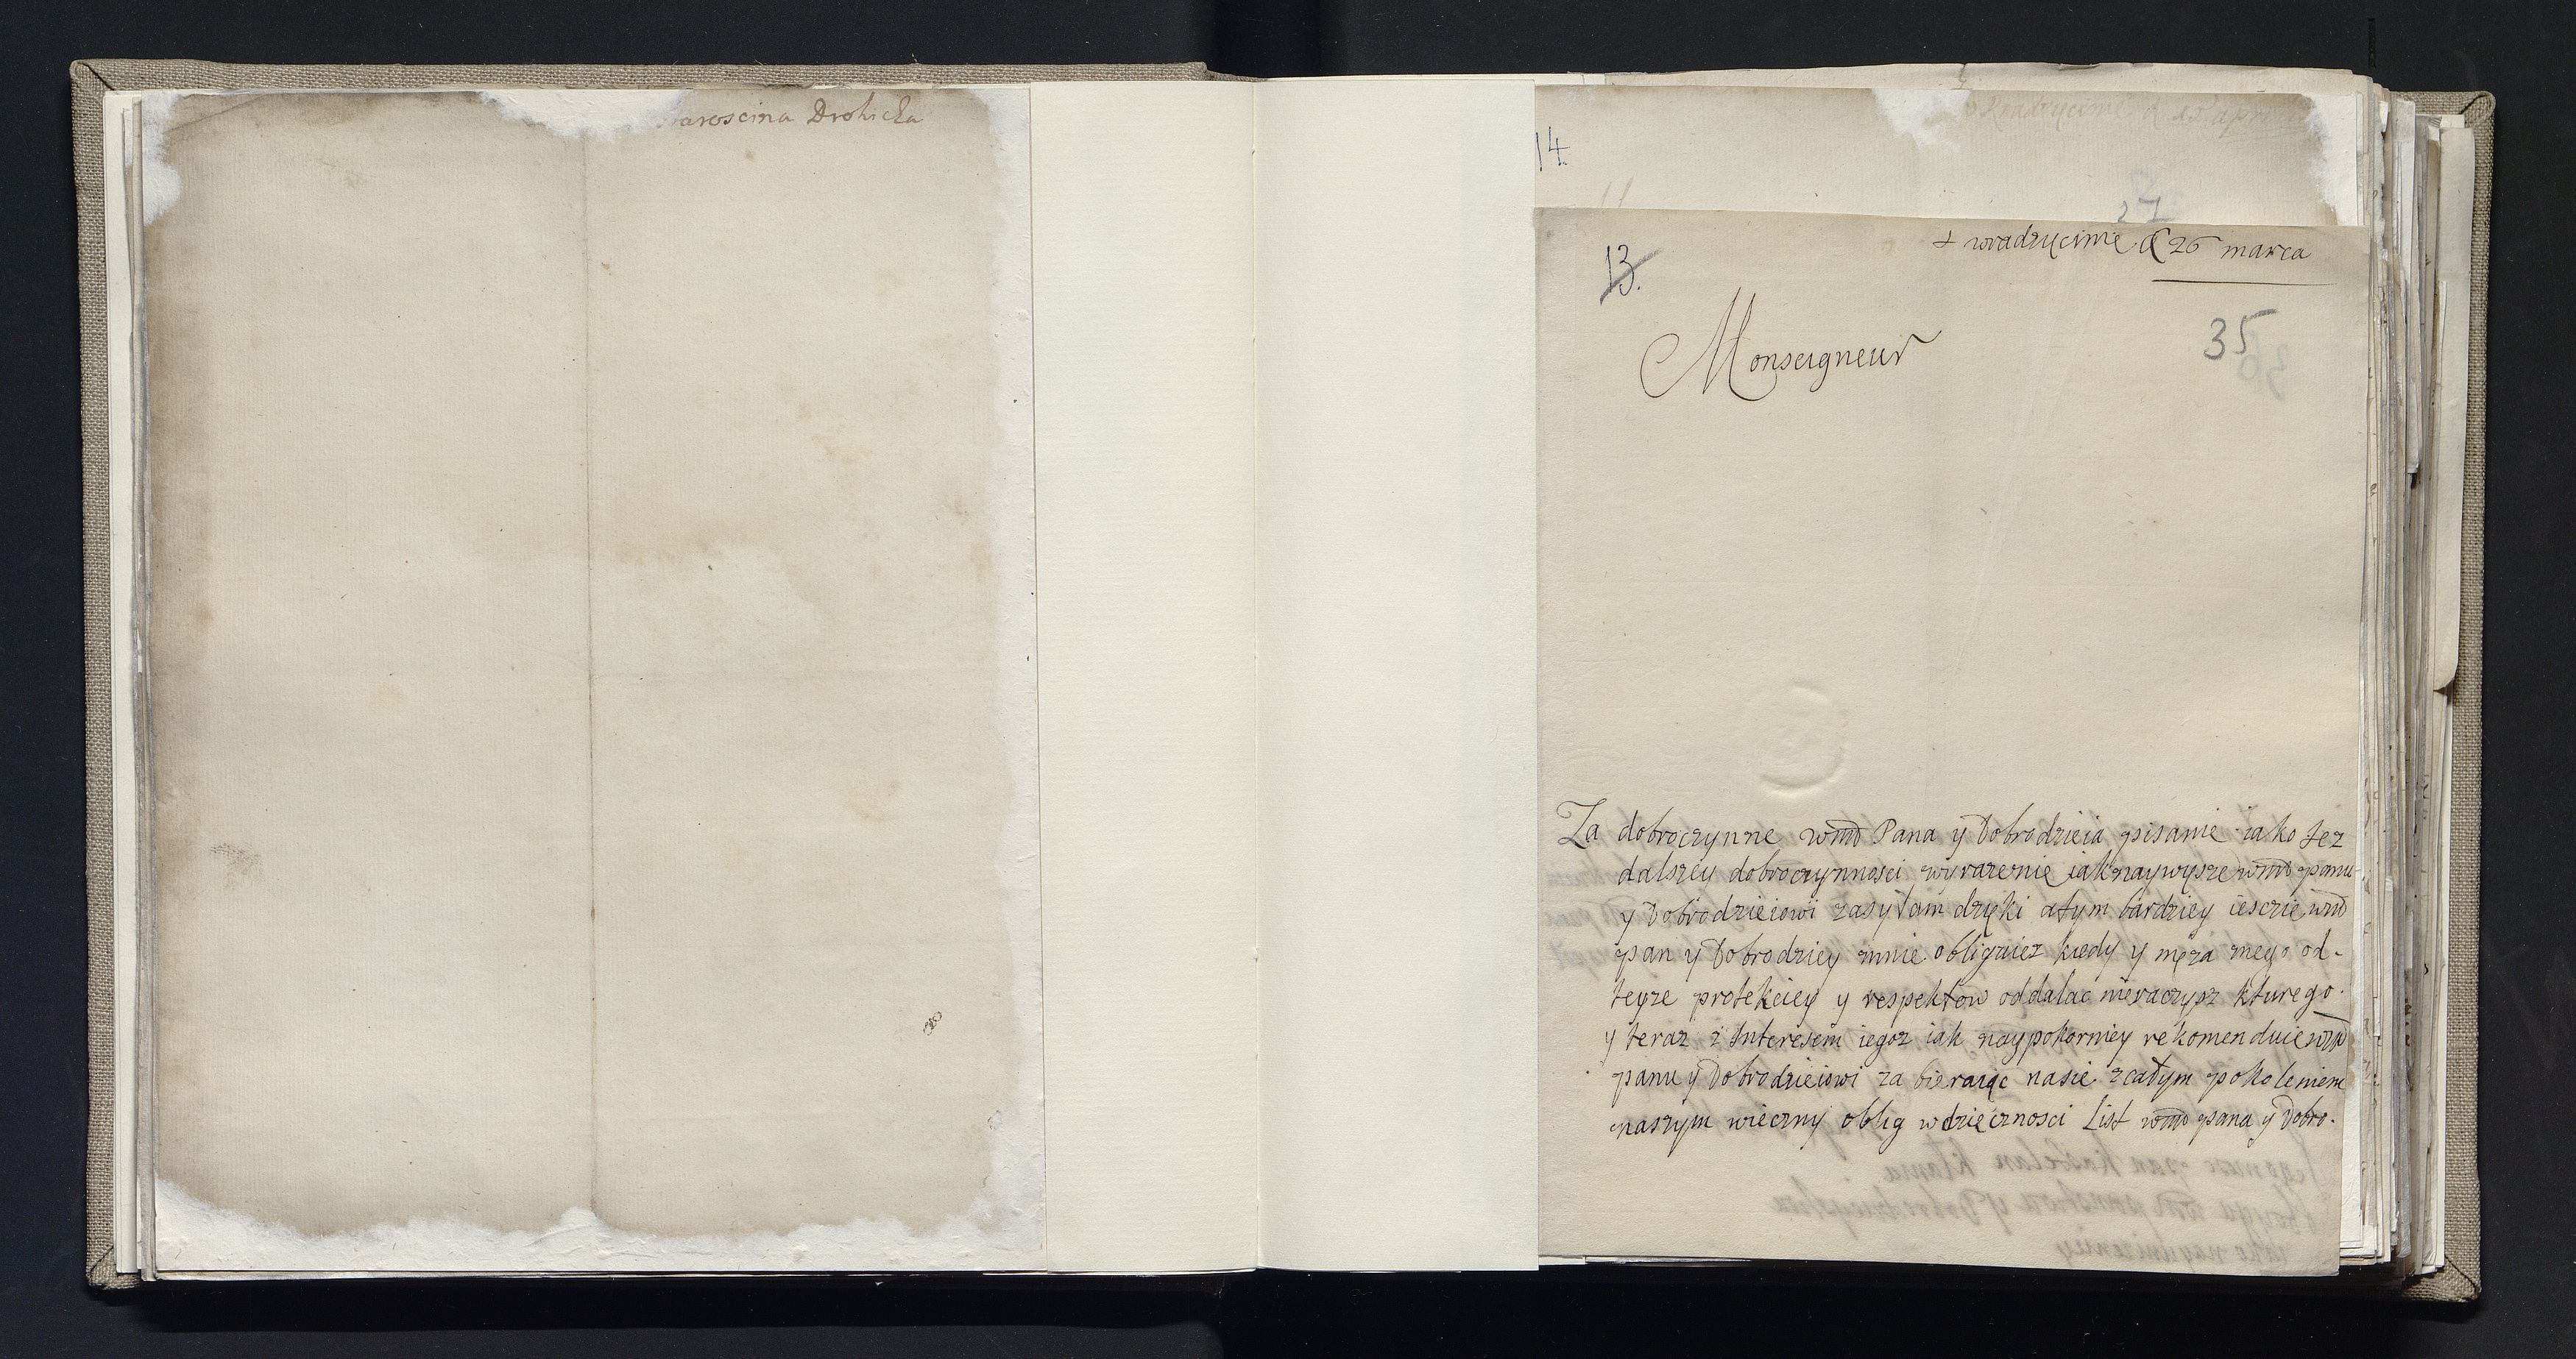 aroscina Drohicka
14.
27
wradzycimie d 26 marca
13.
35
Monseigneur
Za dobroczynne wmd Pana y Dobrodzieia pisanie iako tez
dalszey dobroczynnosci wyrazenie iaknaywysze wmd panu
y Dobrodzieiowi zasyłam dzięki atym bardziey iescze wmd
pan y Dobrodziey mnie obliguiesz kiedy y męza mego od-
teyze protekciey y respektow oddalac nieraczysz kturego
y teraz z Interesem iegoz iak naypokorniey rekomenduie wmd
panu y Dobrodzieiowi za bieraiąc nasie zcałym pokoleniem
naszym wieczny oblig wdzięcznosci List wmd pana y Dobro-